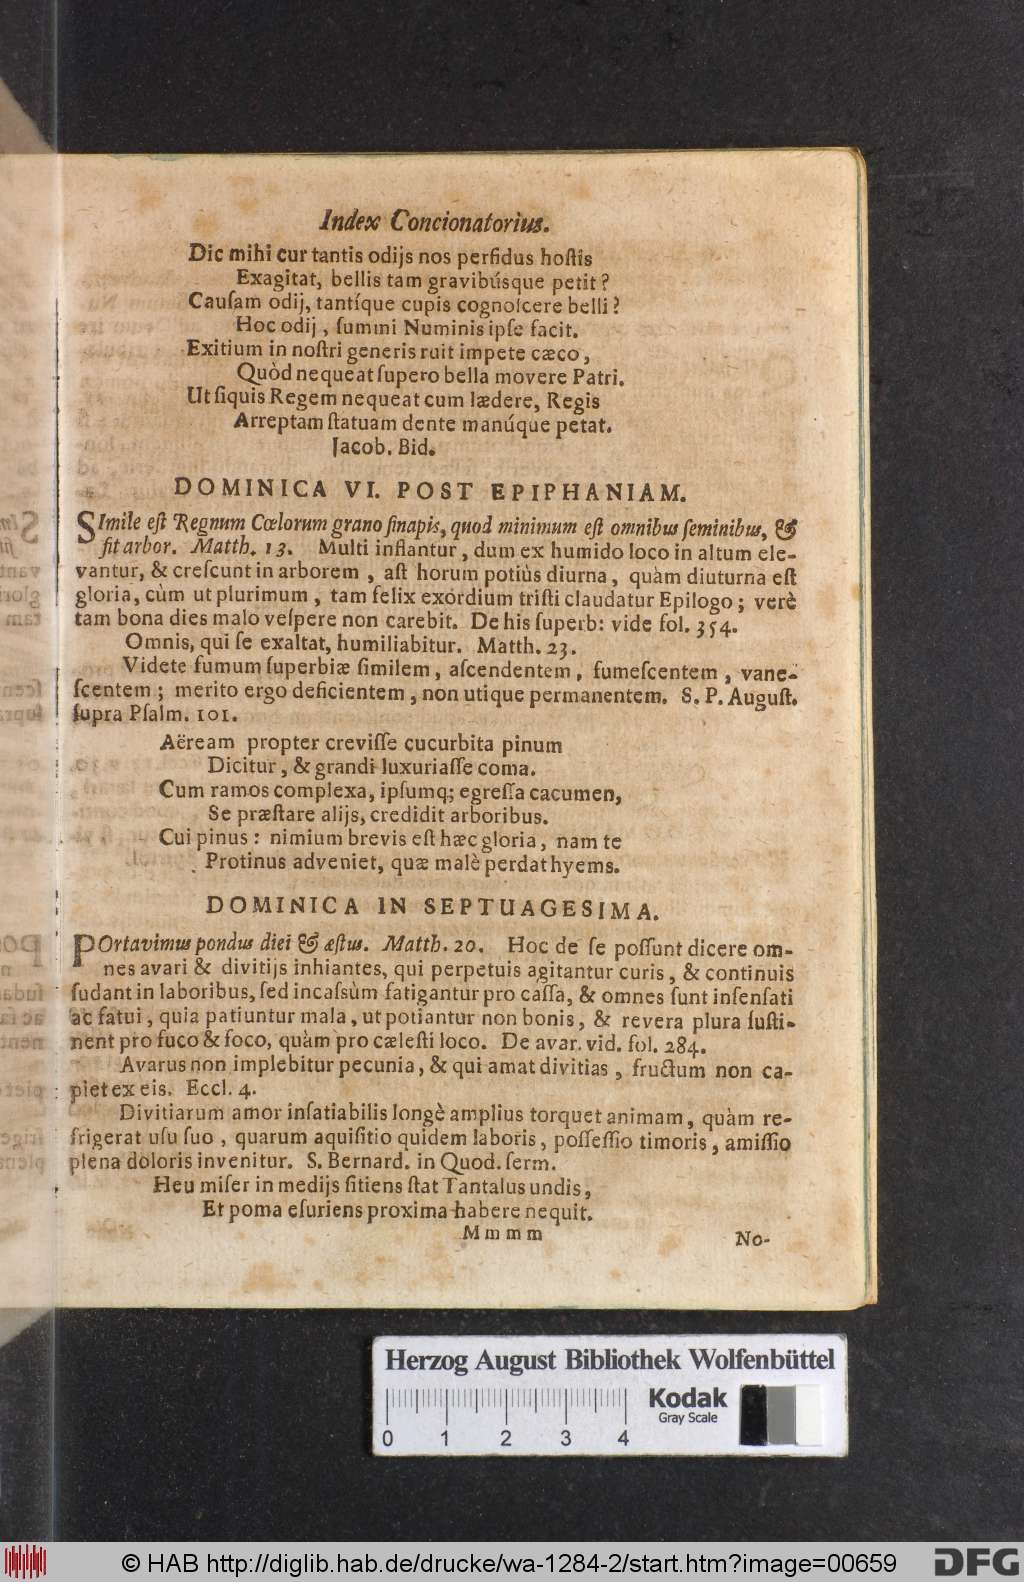 Index Concionatorius.
Dic mihi cur tantis odijs nos perfidus hoſtis
Exagitat, bellis tam gravibúsque petit?
Cauſam odij, tantíque cupis cognoſcere belli?
Hoc odij, ſummi Numinis ipſe facit.
Exitium in noſtri generis ruit impete cæco,
Quòd nequeat ſupero bella movere Patri.
Ut ſiquis Regem nequeat cum lædere, Regis
Arreptam ſtatuam dente manúque petat.
Jacob. Bid.
DOMINICA VI. POST EPIPHANIAM.
SImile eſt Regnum Cœlorum grano ſinapis, quod minimum eſt omnibus ſeminibus, &
fit arbor. Matth. 13. Multi inflantur, dum ex humido loco in altum ele-
vantur, & creſcunt in arborem, aſt horum potiùs diurna, quàm diuturna eſt
gloria, cùm ut plurimum, tam felix exordium triſti claudatur Epilogo; verè
tam bona dies malo veſpere non carebit. De his ſuperb: vide fol. 354.
Omnis, qui ſe exaltat, humiliabitur. Matth. 23.
Videte fumum ſuperbiæ ſimilem, aſcendentem, fumeſcentem, vane-
ſcentem; merito ergo deficientem, non utique permanentem. S. P. Auguſt.
ſupra Pſalm. 101.
Aëream propter creviſſe cucurbita pinum
Dicitur, & grandi luxuriaſſe coma.
Cum ramos complexa, ipſumq; egreſſa cacumen,
Se præſtare alijs, credidit arboribus.
Cui pinus: nimium brevis eſt hæc gloria, nam te
Protinus adveniet, quæ malè perdat hyems.
DOMINICA IN SEPTUAGESIMA.
POrtavimus pondus diei & æſtus. Matth. 20. Hoc de ſe poſſunt dicere om-
nes avari & divitijs inhiantes, qui perpetuis agitantur curis, & continuis
ſudant in laboribus, ſed incaſsùm fatigantur pro caſſa, & omnes ſunt inſenſati
ac fatui, quia patiuntur mala, ut potiantur non bonis, & revera plura ſuſti-
nent pro fuco & foco, quàm pro cæleſti loco. De avar. vid. fol. 284.
Avarus non implebitur pecunia, & qui amat divitias, fructum non ca-
piet ex eis. Eccl. 4.
Divitiarum amor inſatiabilis longè amplius torquet animam, quàm re-
frigerat uſu ſuo, quarum aquiſitio quidem laboris, poſſeſſio timoris, amiſſio
plena doloris invenitur. S. Bernard. in Quod. ſerm.
Heu miſer in medijs ſitiens ſtat Tantalus undis,
Et poma eſuriens proxima habere nequit.
Mmmm
No-
Herzog August Bibliothek Wolfenbüttel
Kodak
Gray Scale
0 1 2 3 4
© HAB http://diglib.hab.de/drucke/wa-1284-2/start.htm?image=00659
DFG